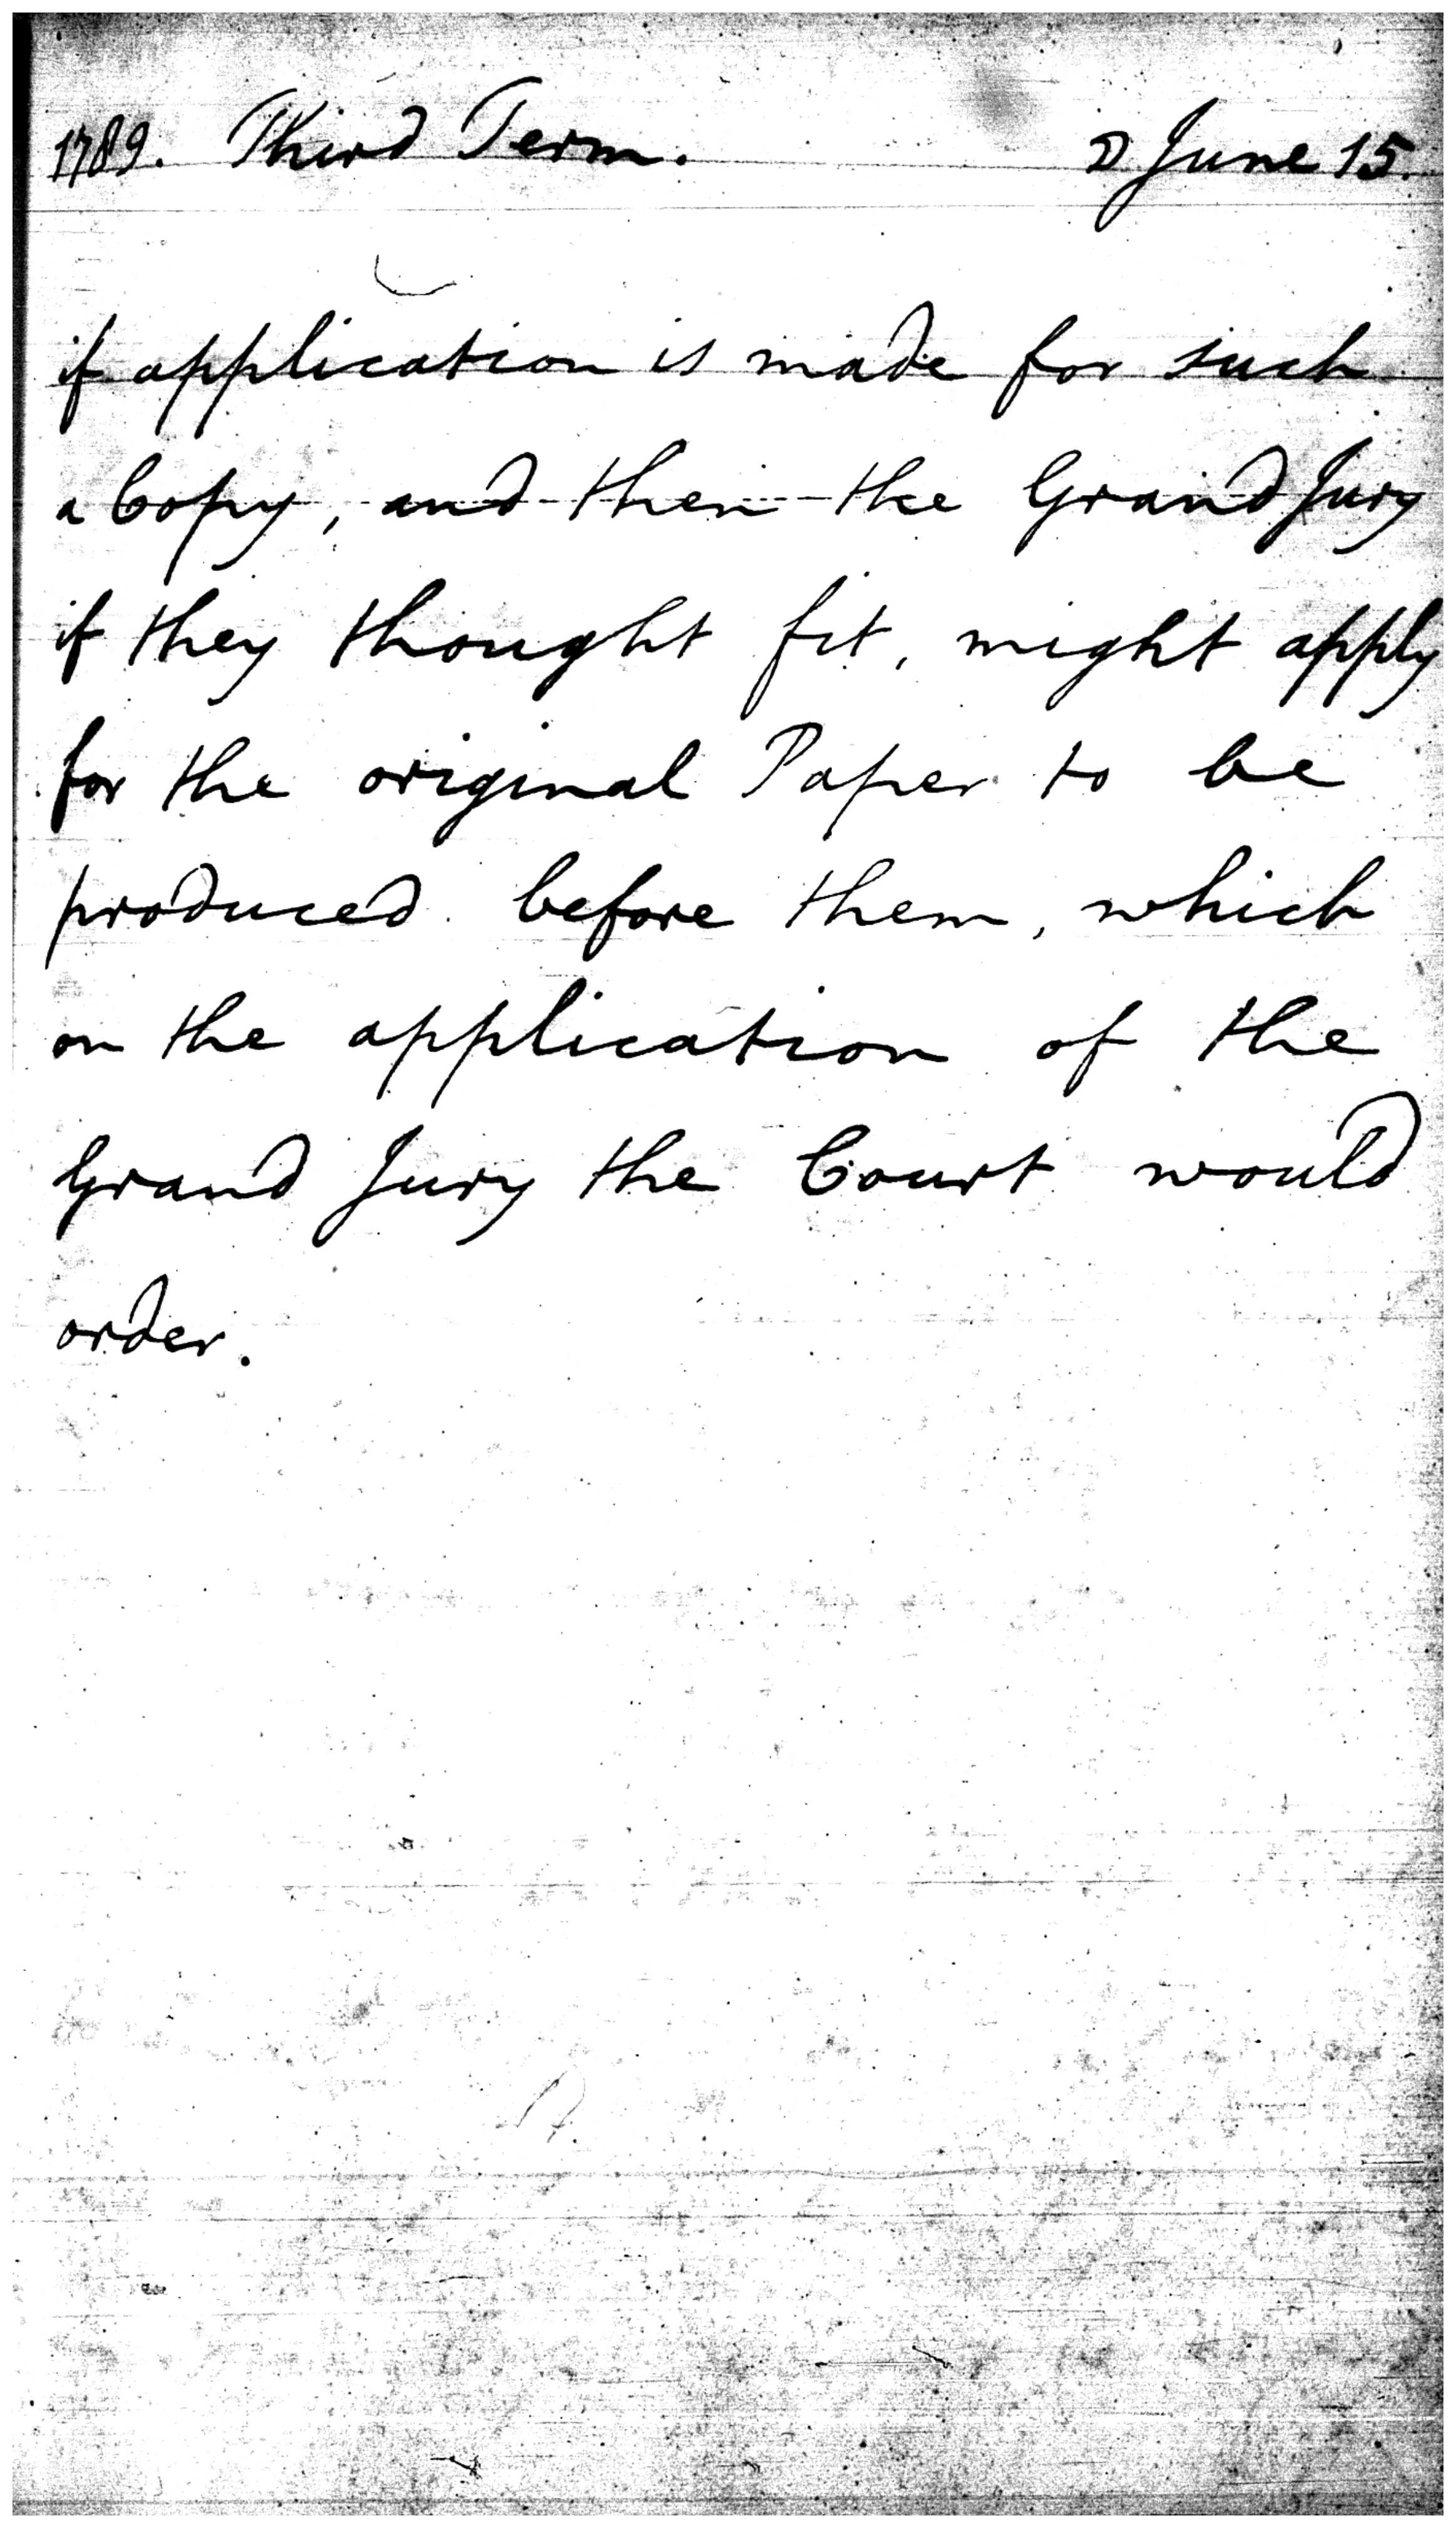 1789. Third Term. ☽ June 15.
if application is made for such
a Copy, and then the Grand Jury
if they thought fit, might apply
for the original Paper to be
produced before them, which
on the application of the
Grand Jury the Court would
order.